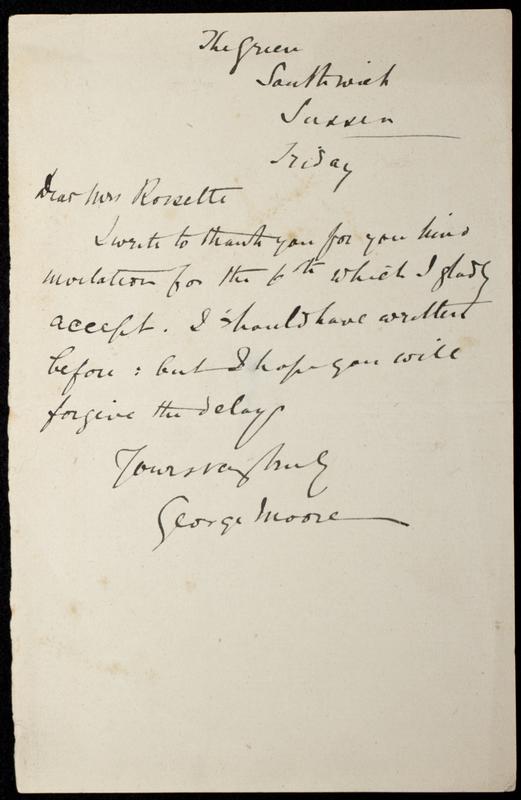 The Green
Southwick
Sussex
Friday
Dear Mrs Rossetti
I write to thank you for you kind
invitation for the 6th which I gladly
accept. I should have written
before : but I hope you will
forgive the delay
Yours very truly
George Moore